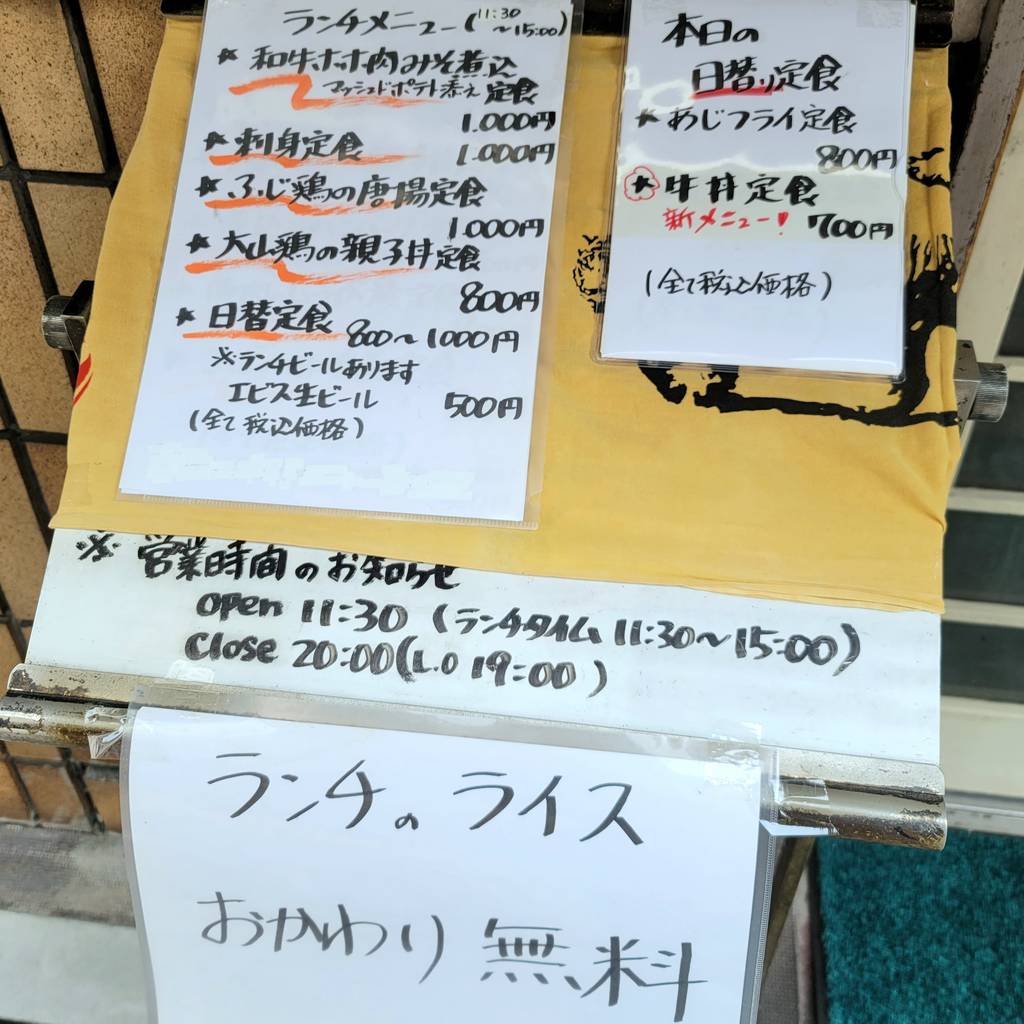 ランチメニュー(11:30～15:00)
★和牛ホホ肉みそ煮込
マッシュドポテト添え 定食
1.000円
★刺身定食 1.000円
★ふじ鶏の唐揚定食
1.000円
★大山鶏の親子丼定食
800円
★日替定食 800～1000円
※ランチビールあります
エビス生ビール 500円
(全て税込価格)
本日の
日替り定食
★あじフライ定食
800円
★牛丼定食
新メニュー! 700円
(全て税込価格)
※営業時間のお知らせ
open 11:30 (ランチタイム 11:30～15:00)
close 20:00(L.O 19:00)
ランチのライス
おかわり無料